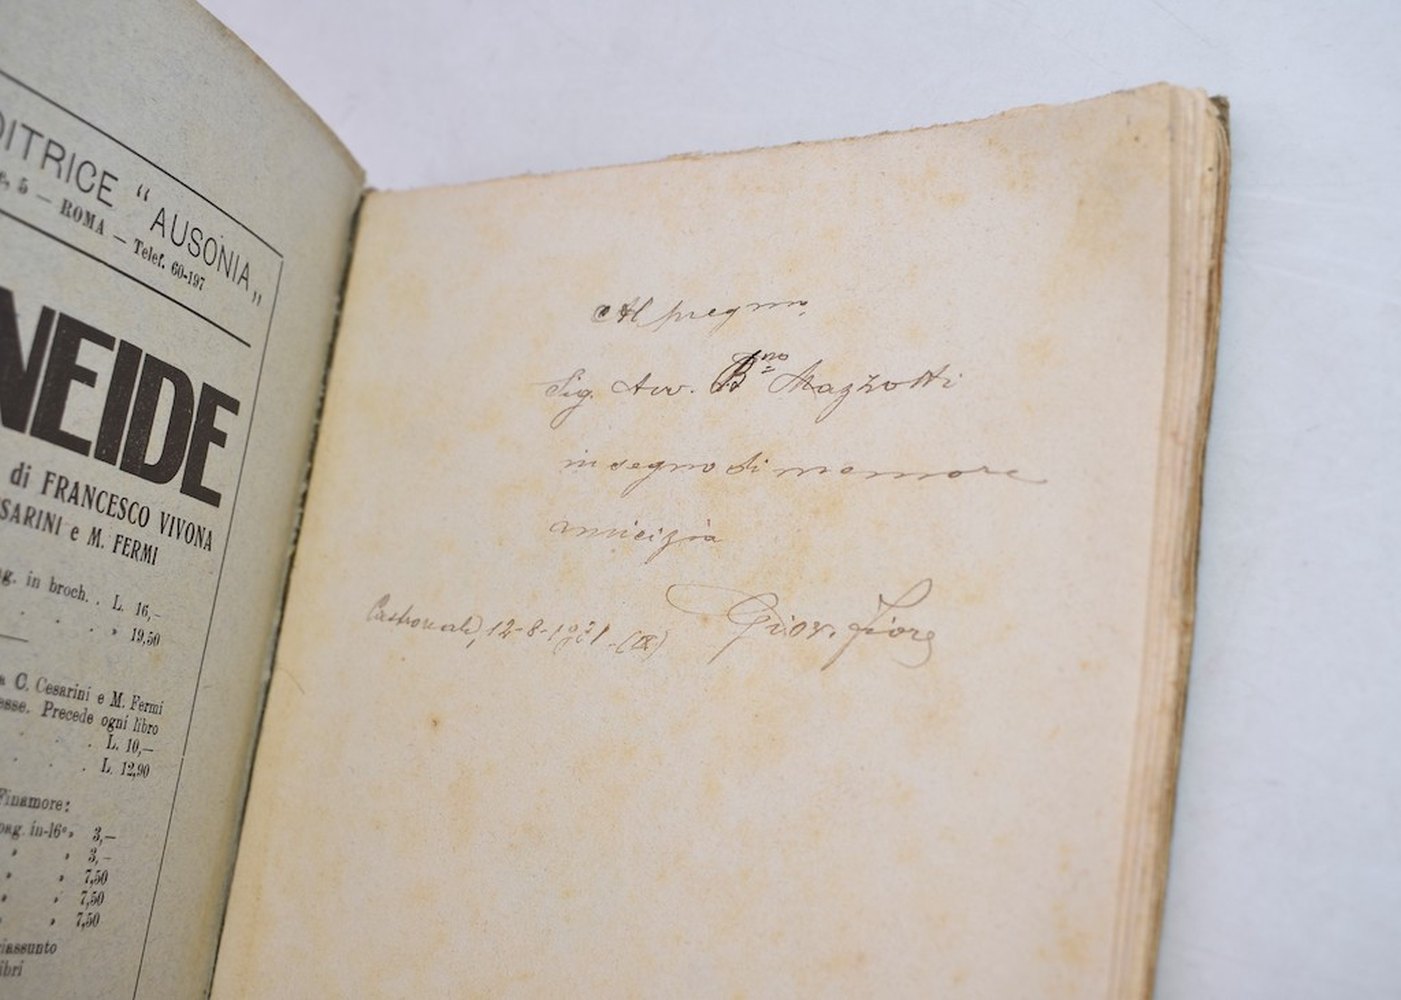 DITRICE “ AUSONIA „
5 — ROMA — Telef. 60-197
NEIDE
di FRANCESCO VIVONA
SARINI e M. FERMI
ag. in broch. . L. 16,—
. . . . » 19,50
a C. Cesarini e M. Fermi
esse. Precede ogni libro
. . . L. 10,—
. . . L. 12,90
Finamore:
pag. in-16° » 3,—
» » 3,—
» » 7,50
» » 7,50
» » 7,50
riassunto
libri
Al pregmo
Sig. Avv. Bno Mazzotti
in segno di memore
amicizia
Castroreale, 12-8-1931-(IX) Giov. Fiore